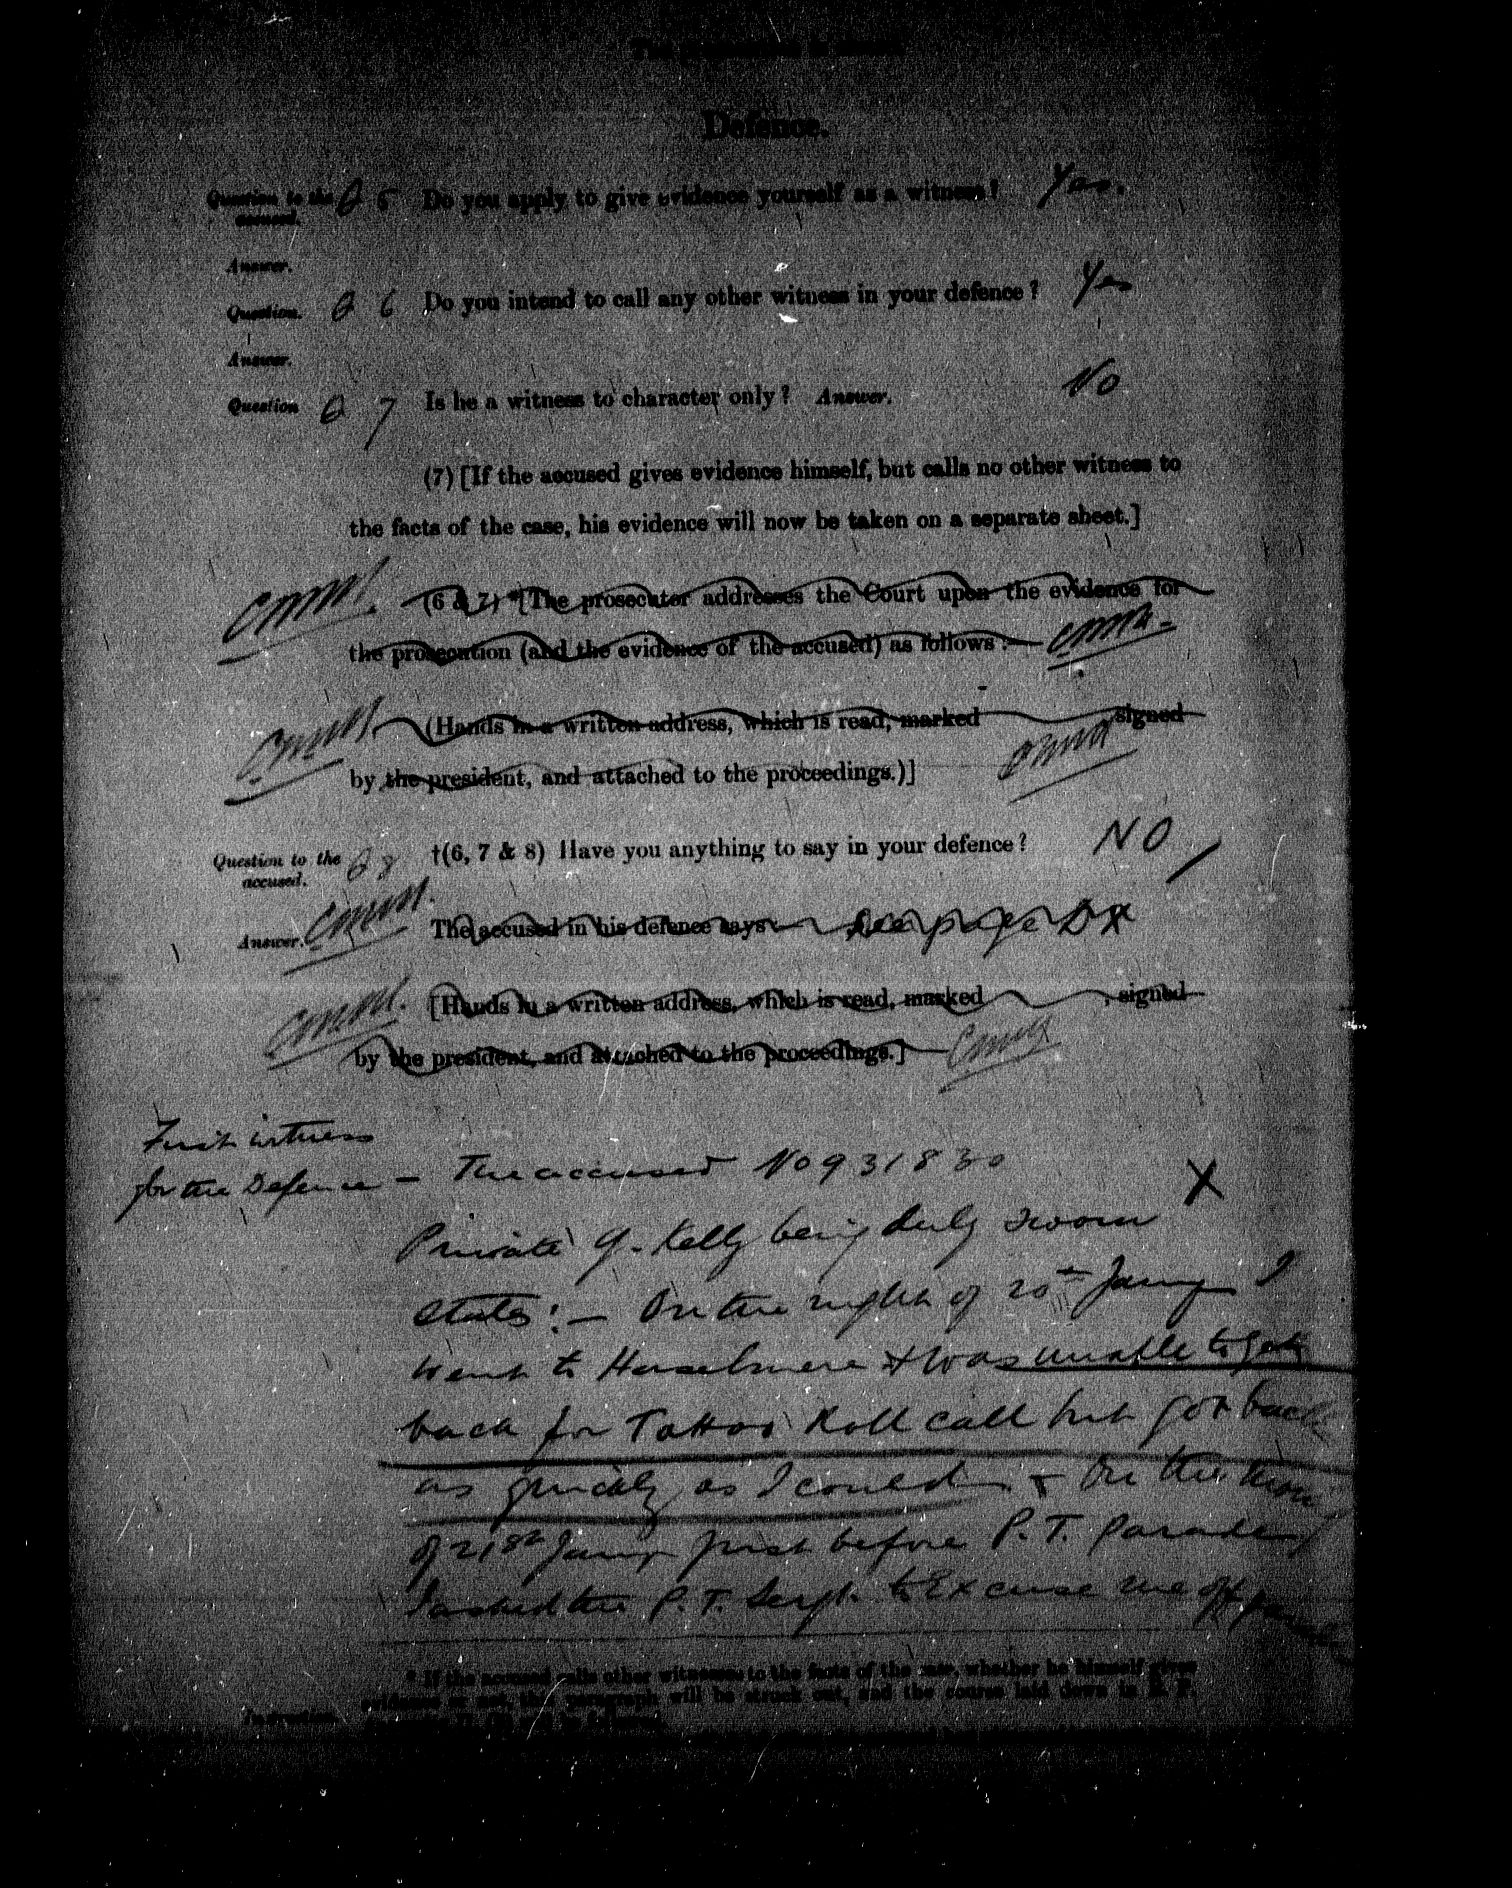 Defence.
Question to the Q 5 Do you apply to give evidence yourself as a witness? Yes.
accused.
Answer.
Question. Q 6 Do you intend to call any other witness in your defence? Yes
Answer.
Question Q 7 Is he a witness to character only? Answer. No
(7) [If the accused gives evidence himself, but calls no other witness to
the facts of the case, his evidence will now be taken on a separate sheet.]
(6 & 7) *[The prosecutor addresses the Court upon the evidence for
the prosecution (and the evidence of the accused) as follows :—
(Hands in a written address, which is read, marked signed
by the president, and attached to the proceedings.)]
Question to the Q 8 †(6, 7 & 8) Have you anything to say in your defence? NO
accused.
Answer. The accused in his defence says see page DX
[Hands in a written address, which is read, marked , signed
by the president, and attached to the proceedings.]
First witness
for the Defence — The accused No 931830 X
Private G. Kelly being duly sworn
states :— On the night of 20th Jany I
went to Haselmere & was unable to get
back for Tattoo Roll call but got back
as quickly as I could & On the
of 21st Jany just before P.T. Parade
I asked the P.T. Sergt. to Excuse me off
* If the accused calls other witnesses to the facts of the case, whether he himself gives
evidence or not, this paragraph will be struck out, and the course laid down in R. P.
Instruction.